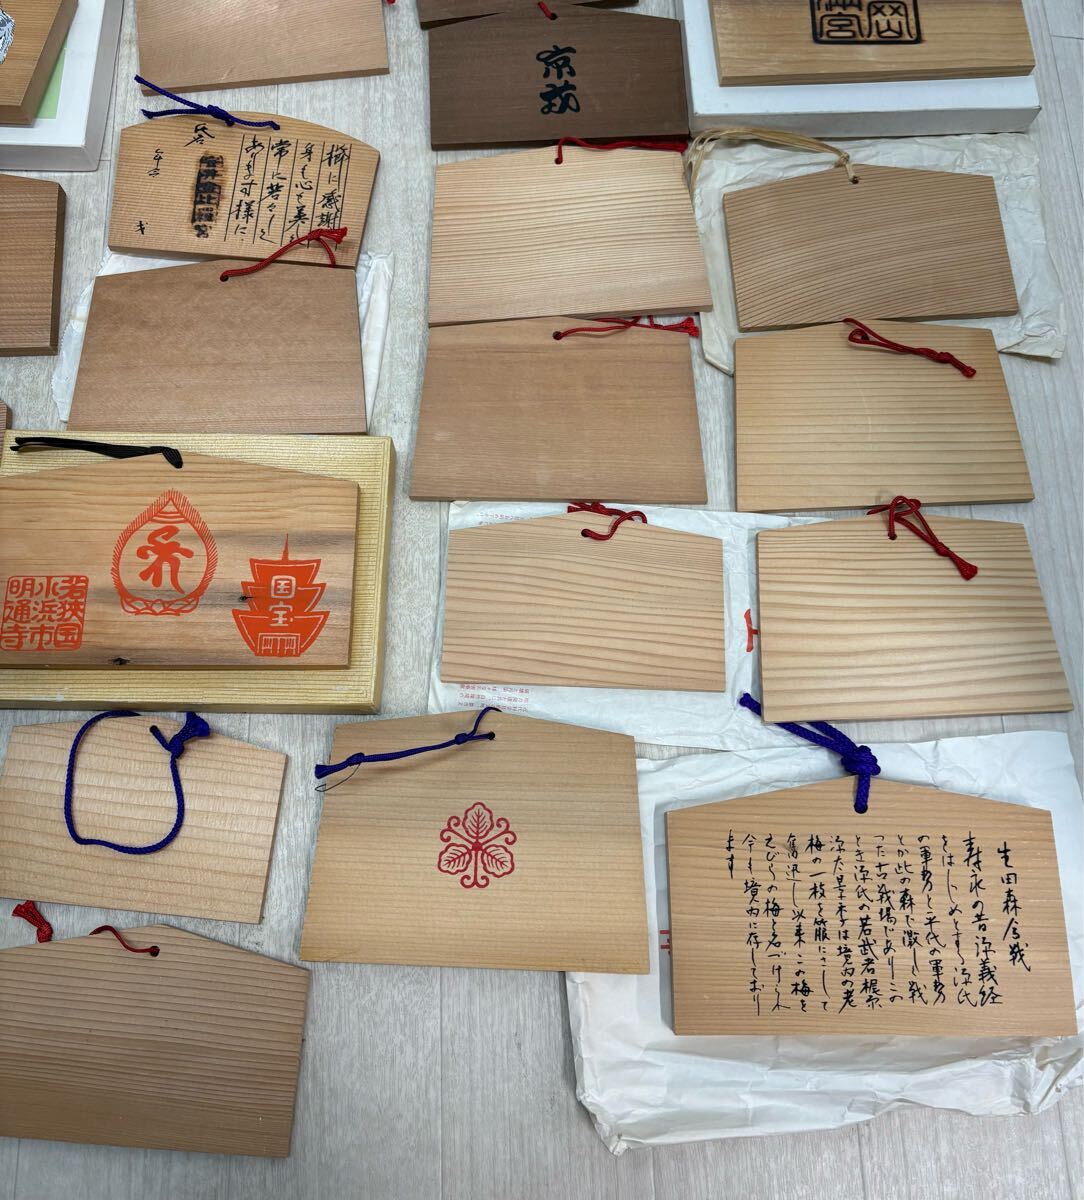 京都
宮
樺に感謝
身も心も美しく
常に若々しく
あります様に
氏名
安井金比羅宮
年令
才
国宝
若狭国
小浜市
明通寺
生田森合戦
寿永の昔源義経
をはじめとする源氏
の軍勢と平氏の軍勢
とが此の森で激しく戦
った古戦場でありこの
とき源氏の若武者梶原
源太景季は境内の老
梅の一枝を箙にさして
奮迅し以来この梅を
えびらの梅と名づけられ
今も境内に存しており
ます